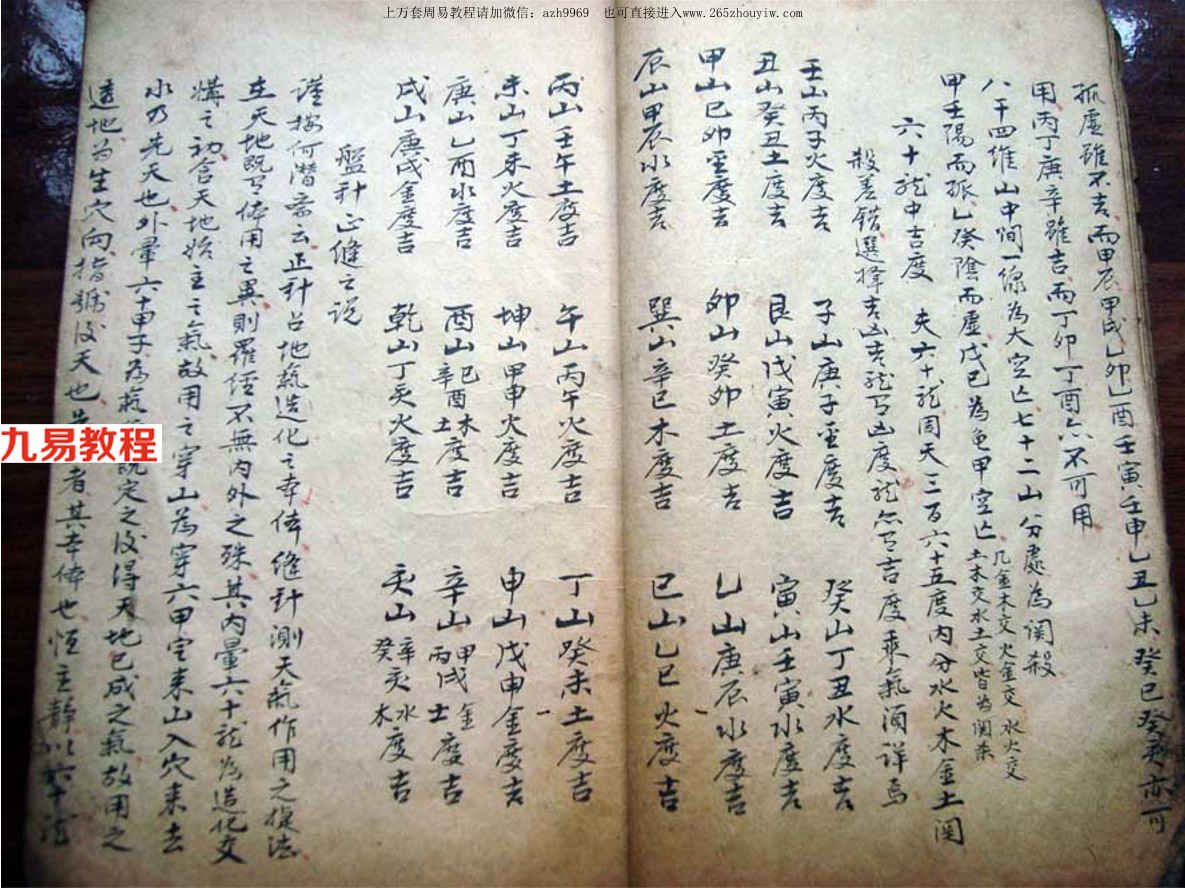 上万套周易教程请加微信：azh9969 也可直接进入www.265zhouyiw.com
孤虚雖不吉而甲辰甲戌乙卯乙酉壬寅壬申乙丑乙未癸巳癸亥亦可
用丙丁庚辛雖吉而丁卯丁酉亦不可用
八干四維山中間一線為大空亡七十二山分處為関殺
甲壬陽而孤乙癸陰而虚戊己為龟甲空亡凡金木交火金交水火交土木交水土交皆为関杀
六十龍中吉度 夫六十龍周天三百六十五度内分水火木金土関
殺差錯選擇吉凶吉龍有凶度凶龍亦有吉度乘氣須詳焉
壬山丙子火度吉 子山庚子金度吉 癸山丁丑水度吉
丑山癸丑土度吉 艮山戊寅火度吉 寅山壬寅水度吉
甲山己卯金度吉 卯山癸卯土度吉 乙山庚辰水度吉
辰山甲辰水度吉 巽山辛巳木度吉 巳山乙巳火度吉
丙山壬午土度吉 午山丙午火度吉 丁山癸未土度吉
未山丁未火度吉 坤山甲申火度吉 申山戊申金度吉
庚山乙酉水度吉 酉山辛酉己木土度吉 辛山甲戌金丙戌土度吉
戌山庚戌金度吉 乾山丁亥火度吉 亥山辛亥水癸亥木度吉
盤針正縫之説
謹按何潜斋云正針占地氣造化之本体縫針測天氣作用之捉法
在天地既有体用之異則羅經不無内外之殊其内暈六十龍為造化交
媾之初含天地始主之氣故用之穿山為穿六甲定来山入穴来去
水乃先天也外暈六十甲子為氣 既定之後得天地已成之氣故用之
透地为生穴向指歸後天也先 者其本体也恒主静以六十龍
九易教程